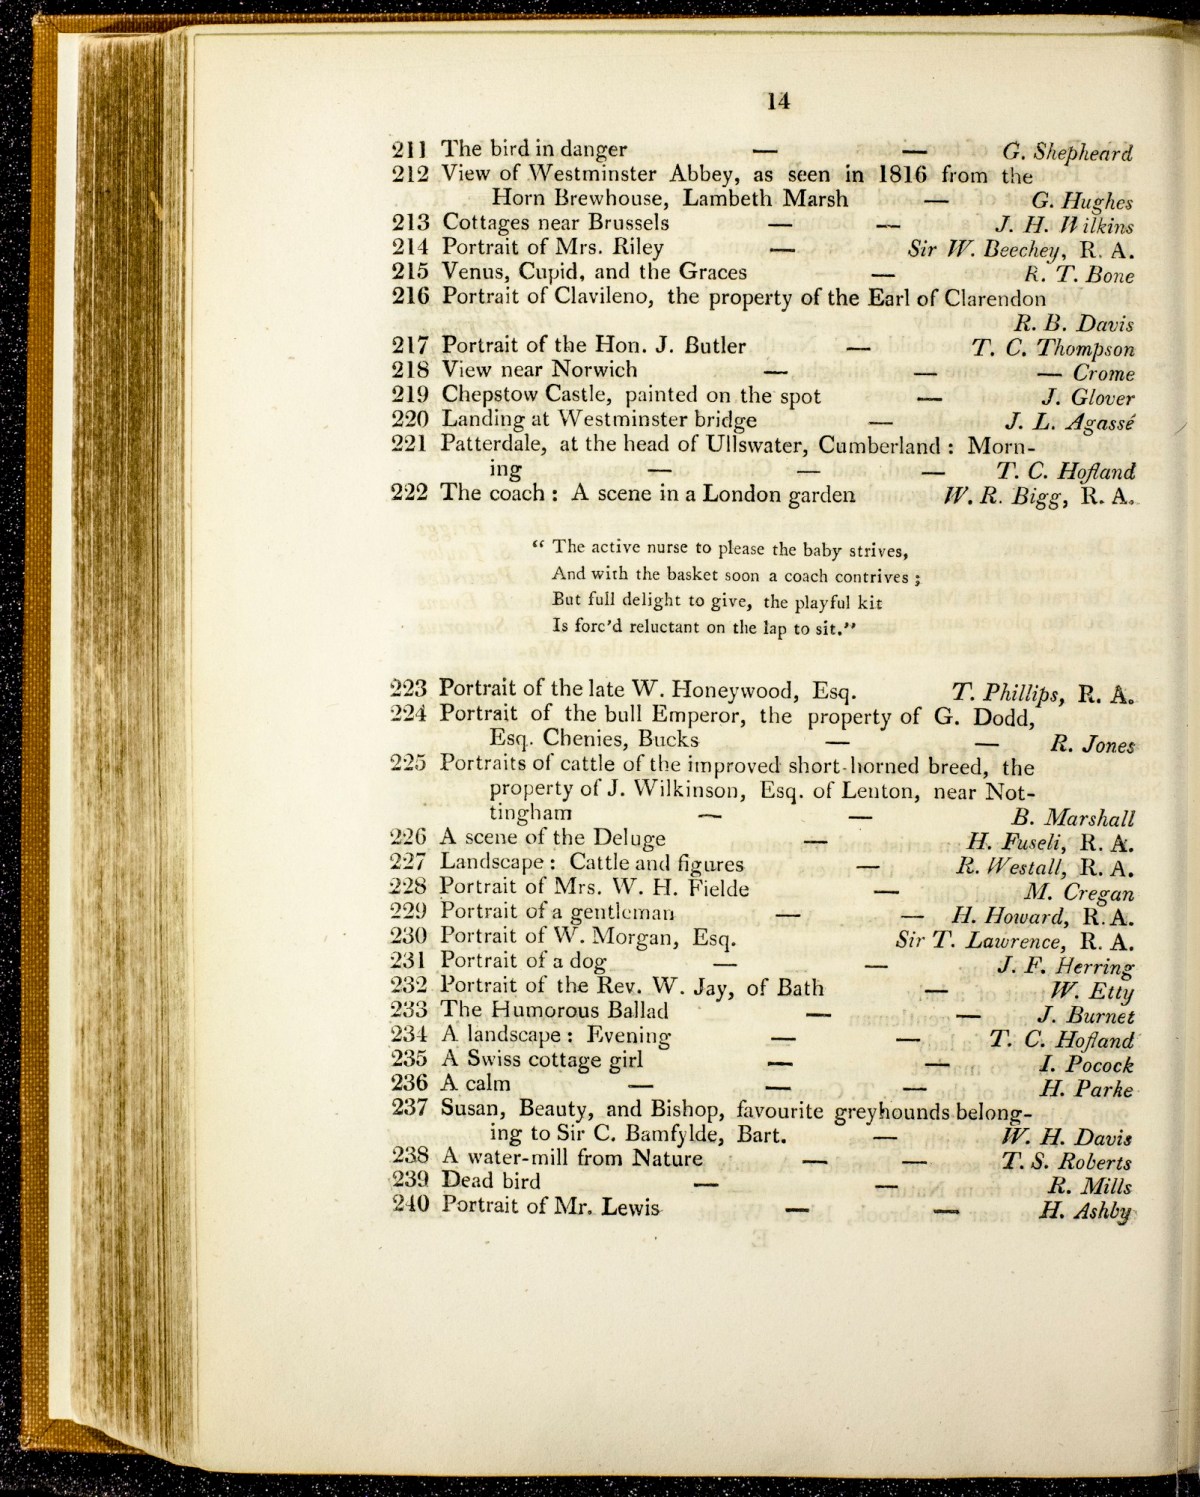 14
211 The bird in danger — — G. Shepheard
212 View of Westminster Abbey, as seen in 1816 from the
Horn Brewhouse, Lambeth Marsh — G. Hughes
213 Cottages near Brussels — — J. H. Wilkins
214 Portrait of Mrs. Riley — Sir W. Beechey, R. A.
215 Venus, Cupid, and the Graces — R. T. Bone
216 Portrait of Clavileno, the property of the Earl of Clarendon
R. B. Davis
217 Portrait of the Hon. J. Butler — T. C. Thompson
218 View near Norwich — — — Crome
219 Chepstow Castle, painted on the spot — J. Glover
220 Landing at Westminster bridge — J. L. Agassé
221 Patterdale, at the head of Ullswater, Cumberland : Morn-
ing — — — T. C. Hofland
222 The coach : A scene in a London garden W. R. Bigg, R. A.
“ The active nurse to please the baby strives,
And with the basket soon a coach contrives ;
But full delight to give, the playful kit
Is forc'd reluctant on the lap to sit.”
223 Portrait of the late W. Honeywood, Esq. T. Phillips, R. A.
224 Portrait of the bull Emperor, the property of G. Dodd,
Esq. Chenies, Bucks — — R. Jones
225 Portraits of cattle of the improved short-horned breed, the
property of J. Wilkinson, Esq. of Lenton, near Not-
tingham — — B. Marshall
226 A scene of the Deluge — H. Fuseli, R. A.
227 Landscape : Cattle and figures — R. Westall, R. A.
228 Portrait of Mrs. W. H. Fielde — M. Cregan
229 Portrait of a gentleman — — H. Howard, R. A.
230 Portrait of W. Morgan, Esq. Sir T. Lawrence, R. A.
231 Portrait of a dog — — J. F. Herring
232 Portrait of the Rev. W. Jay, of Bath — W. Etty
233 The Humorous Ballad — — J. Burnet
234 A landscape : Evening — — T. C. Hofland
235 A Swiss cottage girl — — I. Pocock
236 A calm — — — H. Parke
237 Susan, Beauty, and Bishop, favourite greyhounds belong-
ing to Sir C. Bamfylde, Bart. — W. H. Davis
238 A water-mill from Nature — — T. S. Roberts
239 Dead bird — — R. Mills
240 Portrait of Mr. Lewis — — H. Ashby